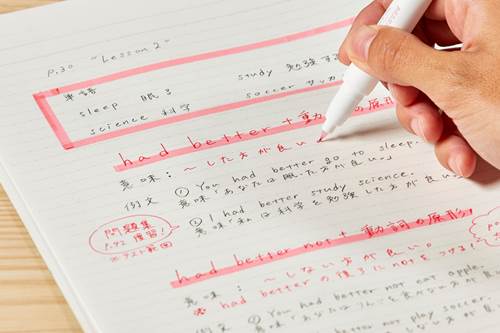 P.30 "Lesson 2"
単語 study 勉強する
sleep 眠る soccer サッカ
science 科学
had better + 動詞の原形
意味：〜した方が良い
例文 ① You had better go to sleep.
意味「あなたは眠った方が良い。」
② I had better study science.
意味「私は科学を勉強した方が良い。」
問題集
P.92 復習!
※テスト範囲
had better not + 動詞の原形
意味：〜しない方が良い。
※ had better の後ろに not をつける!
例文 ① You had better not eat apple.
better not play soccer.